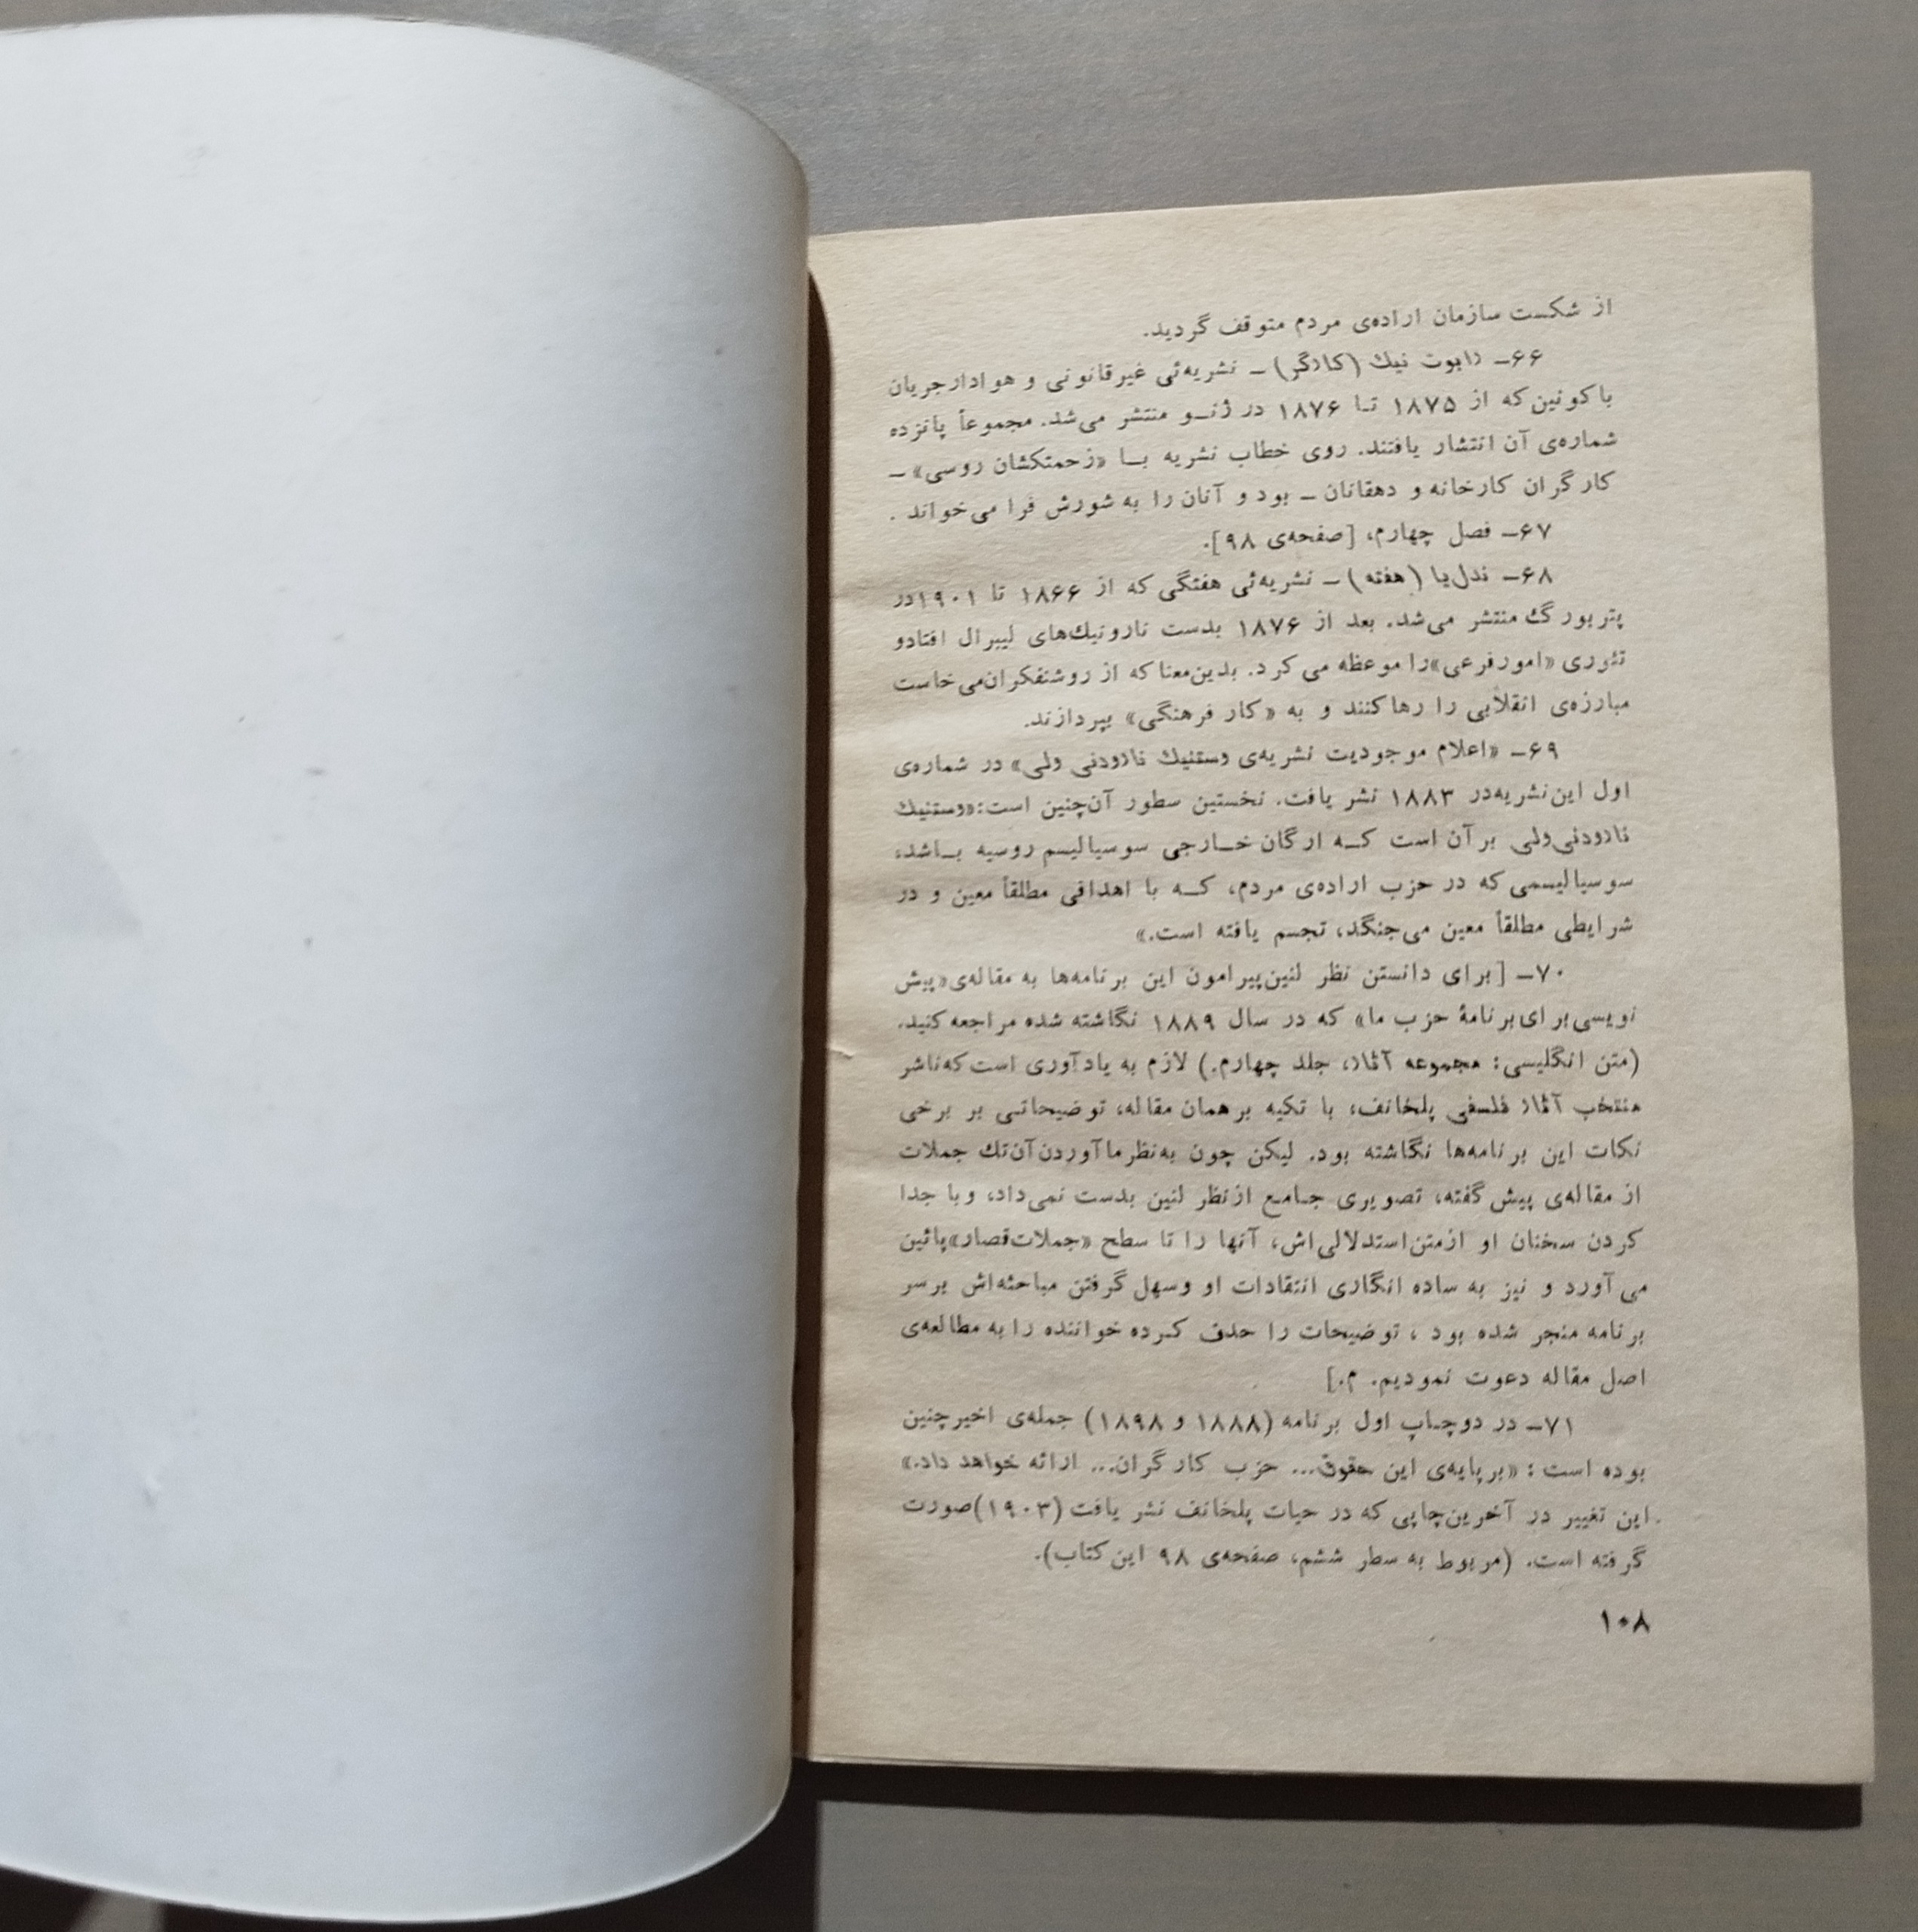 از شکست سازمان اراده‌ی مردم متوقف گردید.
۶۶ــ رابوت نیك (کارگر) ــ نشریه‌ئی غیرقانونی و هوادارجریان
باکونین‌که از ۱۸۷۵ تـا ۱۸۷۶ در ژنــو منتشر می‌شد. مجموعاً پانزده
شماره‌ی آن انتشار یافتند. روی خطاب نشریه بــا «زحمتکشان روسی» ــ
کارگران کارخانه و دهقانان ــ بود و آنان را به شورش فرا می‌خواند .
۶۷ــ فصل چهارم، [صفحه‌ی ۹۸].
۶۸ــ ندل‌یا (هفته) ــ نشریه‌ئی هفتگی که از ۱۸۶۶ تا ۱۹۰۱در
پتربورگ منتشر می‌شد. بعد از ۱۸۷۶ بدست نارونیك‌های لیبرال افتادو
تئوری «امورفرعی»را موعظه می‌کرد. بدین‌معنا‌که از روشنفکران‌می‌خاست
مبارزه‌ی انقلابی را رهاکنند و به «کار فرهنگی» بپردازند.
۶۹ــ «اعلام موجودیت نشریه‌ی وستنیك نارودنی ولی» در شماره‌ی
اول این‌نشریه‌در ۱۸۸۳ نشر یافت. نخستین سطور آن‌چنین است:«وستنیك
نارودنی‌ولی برآن است کــه ارگان خــارجی سوسیالیسم روسیه بــاشد،
سوسیالیسمی که در حزب اراده‌ی مردم، کــه با اهدافی مطلقاً معین و در
شرایطی مطلقاً معین می‌جنگد، تجسم یافته است.»
۷۰ــ [برای دانستن نظر لنین‌پیرامون این برنامه‌ها به مقاله‌ی«پیش
نویسی‌برای‌برنامهٔ حزب ما» که در سال ۱۸۸۹ نگاشته شده مراجعه‌کنید.
(متن انگلیسی: مجموعه آثار، جلد چهارم.) لازم به یادآوری است‌که‌ناشر
منتخب آثار فلسفی پلخانف، با تکیه برهمان مقاله، توضیحاتـی بر برخی
نکات این برنامه‌ها نگاشته بود. لیکن چون به‌نظرماآوردن‌آن‌تك جملات
از مقاله‌ی پیش‌گفته، تصویری جـامـع ازنظر لنین بدست نمی‌داد، وبا جدا
کردن سخنان او ازمتن‌استدلالی‌اش، آنها را تا سطح «جملات‌قصار»پائین
می‌آورد و نیز به ساده انگاری انتقادات او وسهل‌گرفتن مباحثه‌اش برسر
برنامه منجر شده بود ، توضیحات را حذف کـرده خواننده را به مطالعه‌ی
اصل مقاله دعوت نمودیم. م.]
۷۱ــ در دوچـاپ اول برنامه (۱۸۸۸ و ۱۸۹۸) جمله‌ی اخیرچنین
بوده است : «برپایه‌ی این حقوق... حزب کارگران... ارائه خواهد داد.»
این تغییر در آخرین‌چاپی که در حیات پلخانف نشر یافت (۱۹۰۳)صورت
گرفته است. (مربوط به سطر ششم، صفحه‌ی ۹۸ این‌کتاب).
۱۰۸